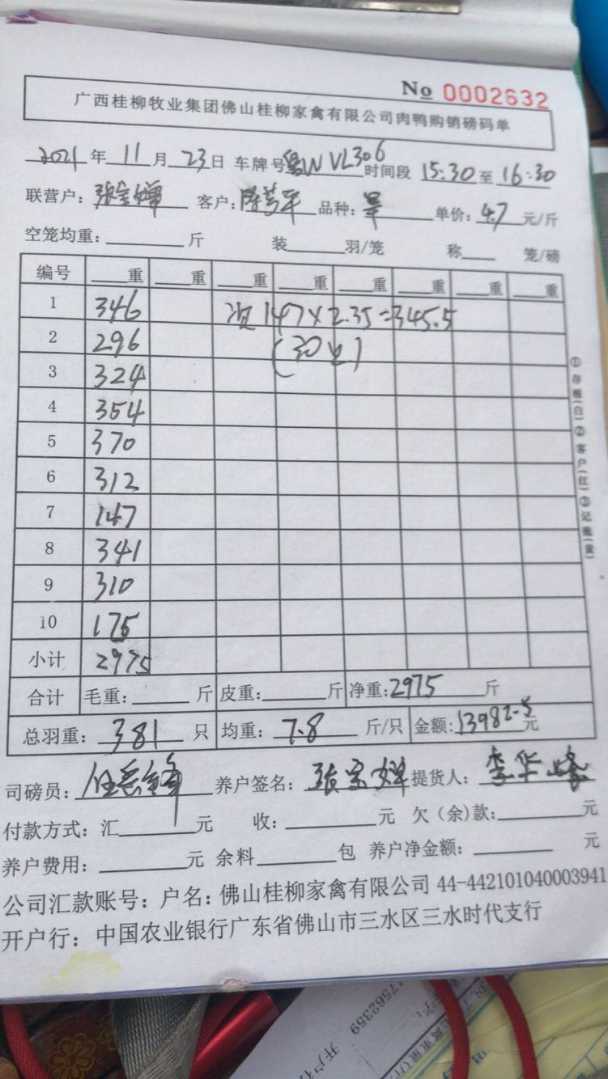 No 0002632
广西桂柳牧业集团佛山桂柳家禽有限公司肉鸭购销磅码单
2021年11月23日 车牌号 VL306 时间段 15:30至16:30
联营户: 张宗婵 客户: 陈芳平 品种: 单价: 4.7元/斤
空笼均重: 斤 装 羽/笼 称 笼/磅
编号 重 重 重 重 重 重 重 重
1 346 次147×2.35=345.5
2 296 (30只)
3 324
4 354
5 370
6 312
7 147
8 341
9 310
10 175
小计 2975
合计 毛重: 斤 皮重: 斤 净重: 2975 斤
总羽重: 381 只 均重: 7.8 斤/只 金额: 13982.5元
司磅员: 养户签名: 张宗婵 提货人: 李华峰
付款方式: 汇 元 收: 元 欠(余)款: 元
养户费用: 元 余料 包 养户净金额: 元
公司汇款账号: 户名: 佛山桂柳家禽有限公司 44-442101040003941
开户行: 中国农业银行广东省佛山市三水区三水时代支行
①存根(白)②客户(红)③记账(黄)